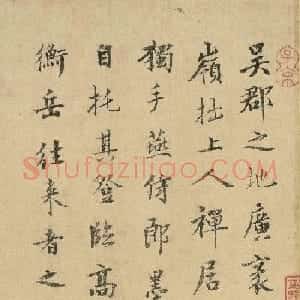 吴郡之地廣袤
嶺拙上人禪居
獨手燕侍郎墨
自托其登臨高
衡岳往来者之
Shufaziliao.com